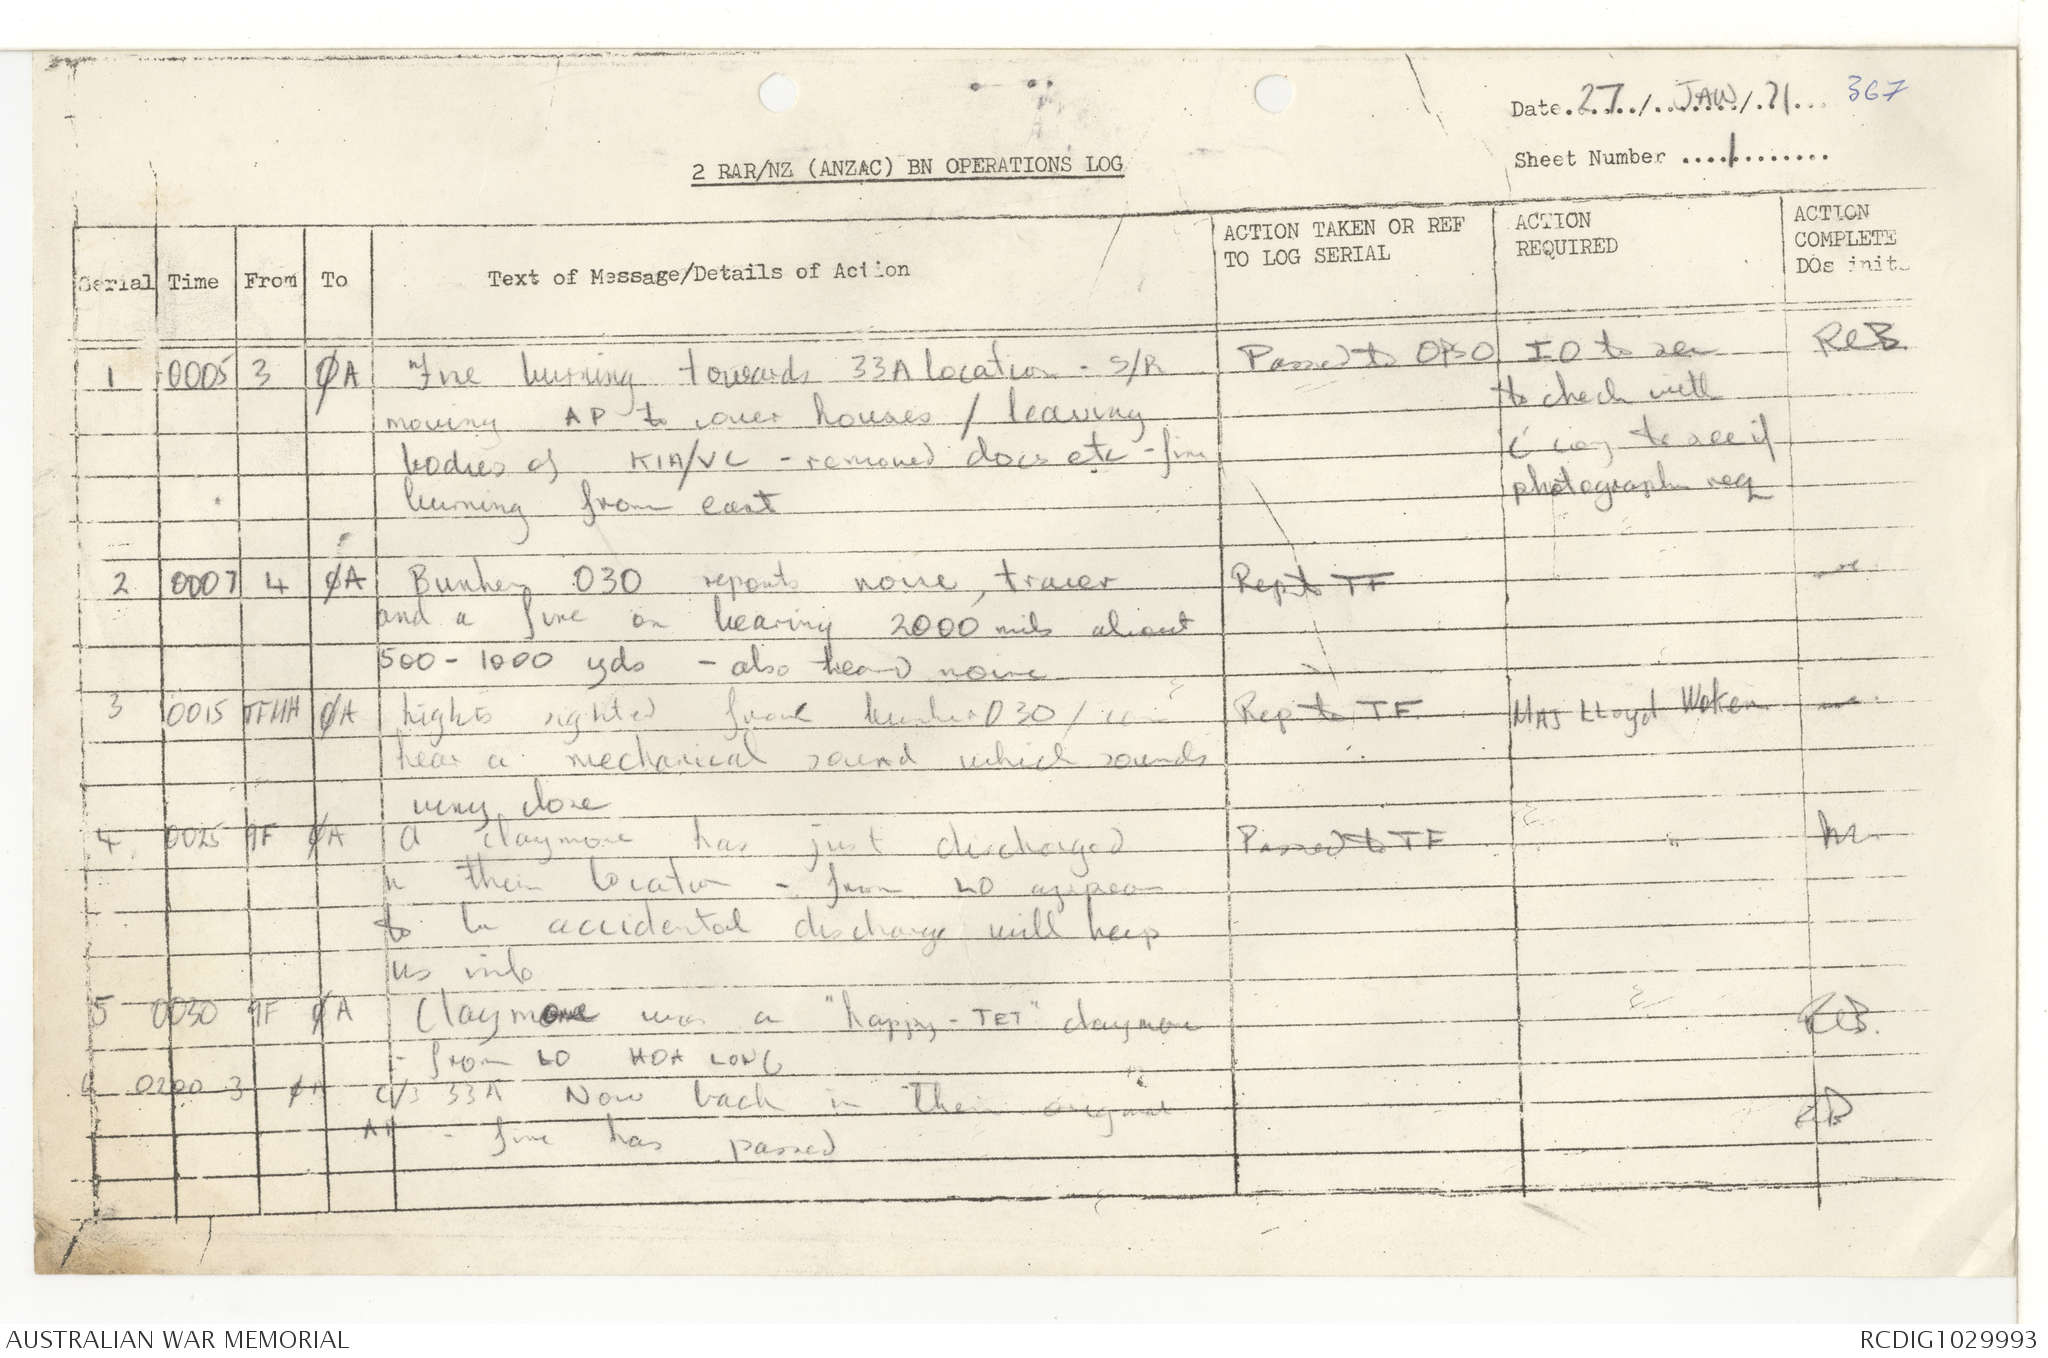 367
Date.27../..JAN./.71...
Sheet Number ....1.........
2 RAR/NZ (ANZAC) BN OPERATIONS LOG
Serial Time From To Text of Message/Details of Action ACTION TAKEN OR REF TO LOG SERIAL ACTION REQUIRED ACTION COMPLETE DOs init.
1 0005 3 ØA Fire burning towards 33A location - Passed to IO to
moving AP to over houses / leaving to check with
bodies of KIA/VC - removed docs etc - fire coy to see if
burning from east photographs req
2 0007 4 ØA Bunker 030 reports noise, tracer Rep to TF
and a fire on bearing 2000 mils about
500 - 1000 yds - also heard noise
3 0015 ØA lights sighted from bunker 030 / can Rep to TF MAJ Lloyd Woken
hear a mechanical sound which sounds
very close
4 0025 ØA A claymore has just discharged Passed to TF "
in their location - from LO appears
to be accidental discharge will keep
us info
5 0030 ØA Claymore was a "happy - TET" claymore
- from LO HOA LONG
6 0200 3 ØA C/S 33A Now back in their original
AP - fire has passed
AUSTRALIAN WAR MEMORIAL
RCDIG1029993